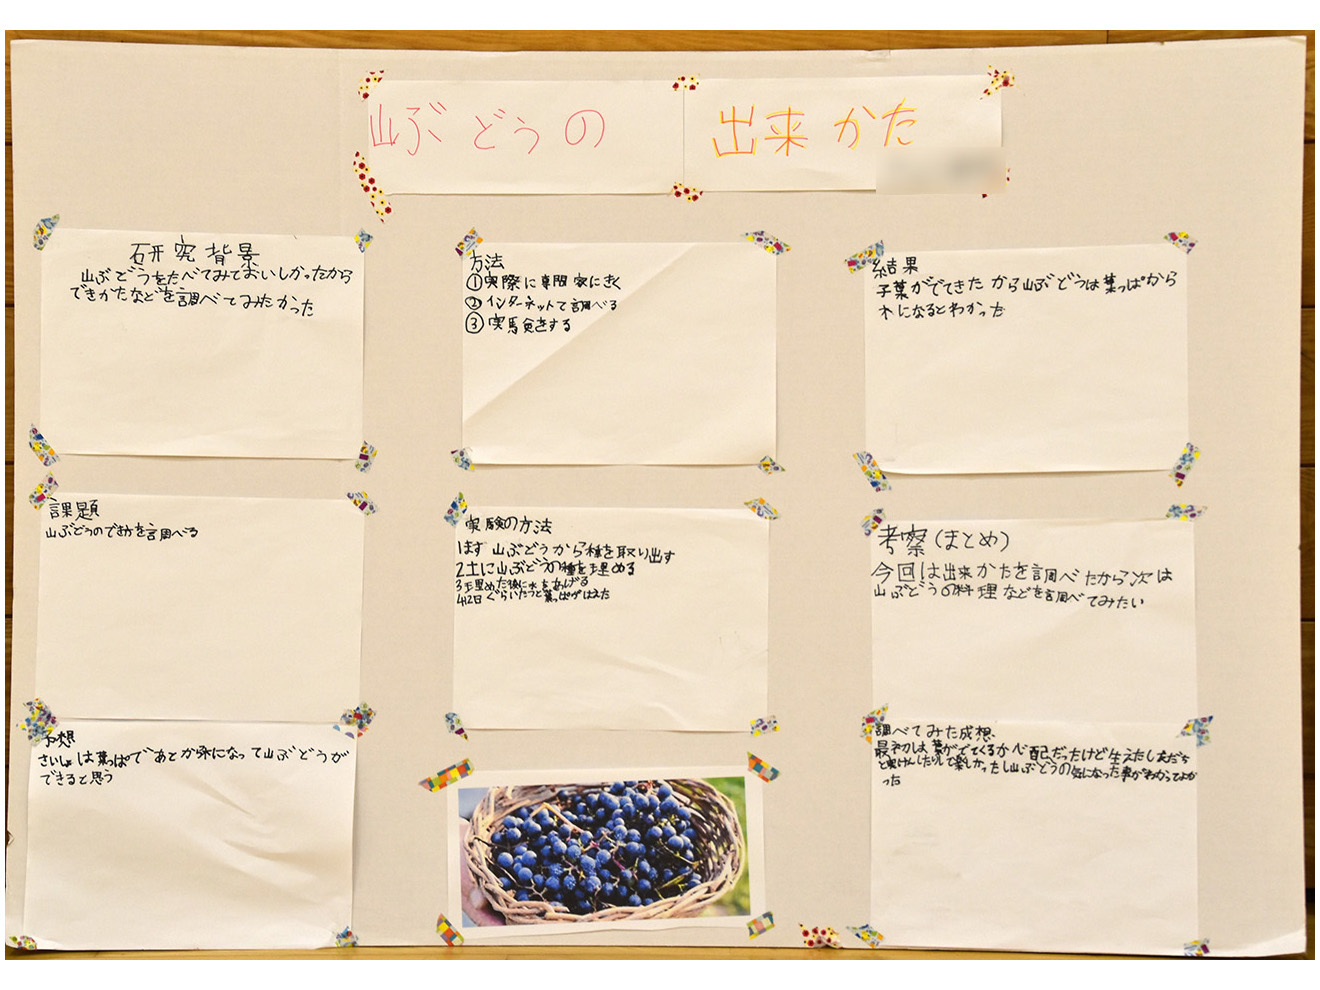 山ぶどうの 出来かた
研究背景
山ぶどうをたべてみておいしかったから
できかたなどを調べてみたかった
課題
山ぶどうのでき方を調べる
予想
さいしょは葉っぱであとから木になって山ぶどうが
できると思う
方法
①実際に専門家にきく
②インターネットで調べる
③実験をする
実験の方法
1まず山ぶどうから種を取り出す
2土に山ぶどうの種を埋める
3埋めた後に水をあげる
4 12日ぐらいたつと葉っぱがはえた
結果
子葉がでてきたから山ぶどうは葉っぱから
木になるとわかった
考察(まとめ)
今回は出来かたを調べたから次は
山ぶどうの料理などを調べてみたい
調べてみた感想、
最初は葉がでてくるか心配だったけど生えたし友だち
と実けんしたりして楽しかったし山ぶどうの気になった事がわかってよか
った